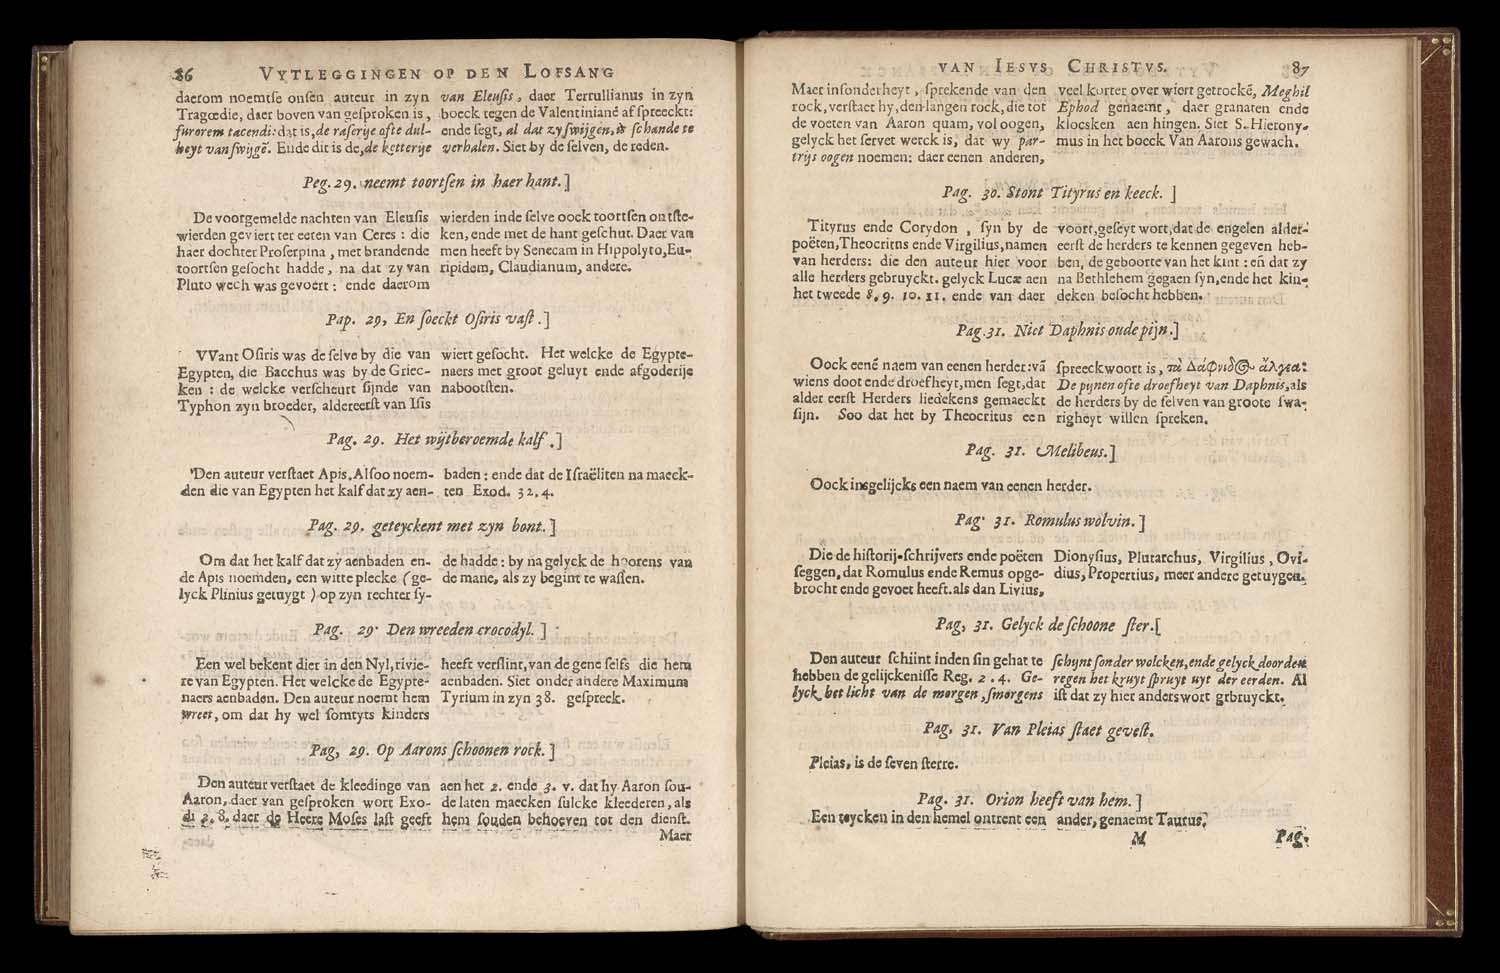 86 VYTLEGGINGEN OP DEN LOFSANG
daerom noemtse onsen auteur in zyn
Tragœdie, daer boven van gesproken is,
furorem tacendi: dat is, de raserije ofte dul-
heyt van swijgē. Ende dit is de, de ketterije
van Eleusis, daer Terrullianus in zyn
boeck tegen de Valentinianē af spreeckt:
ende segt, al dat zy swijgen, is schande te
verhalen. Siet by de selven, de reden.
Peg. 29. neemt toortsen in haer hant.]
De voorgemelde nachten van Eleusis
wierden geviert ter eeren van Ceres: die
haer dochter Proserpina, met brandende
toortsen gesocht hadde, na dat zy van
Pluto wech was gevoert: ende daerom
wierden inde selve oock toortsen ontste-
ken, ende met de hant geschut. Daer van
men heeft by Senecam in Hippolyto, Eu-
ripidem, Claudianum, andere.
Pap. 29, En soeckt Osiris vast.]
VVant Osiris was de selve by die van
Egypten, die Bacchus was by de Griec-
ken: de welcke verscheurt sijnde van
Typhon zyn broeder, aldereerst van Isis
wiert gesocht. Het welcke de Egypte-
naers met groot geluyt ende afgoderije
nabootsten.
Pag. 29. Het wijtberoemde kalf.]
Den auteur verstaet Apis. Alsoo noem-
den die van Egypten het kalf dat zy aen-
baden: ende dat de Israëliten na maeck-
ten Exod. 32. 4.
Pag. 29. geteyckent met zyn bont.]
Om dat het kalf dat zy aenbaden en-
de Apis noemden, een witte plecke (ge-
lyck Plinius getuygt) op zyn rechter sy-
de hadde: by na gelyck de hoorens van
de mane, als zy begint te wassen.
Pag. 29. Den wreeden crocodyl.]
Een wel bekent dier in den Nyl, rivie-
re van Egypten. Het welcke de Egypte-
naers aenbaden. Den auteur noemt hem
wreet, om dat hy wel somtyts kinders
heeft verslint, van de gene selfs die hem
aenbaden. Siet onder andere Maximum
Tyrium in zyn 38. gespreek.
Pag, 29. Op Aarons schoonen rock.]
Den auteur verstaet de kleedinge van
Aaron, daer van gesproken wort Exo-
di 2.8. daer de Heere Moses last geeft
aen het 2. ende 3. v. dat hy Aaron sou-
de laten maecken sulcke kleederen, als
hem souden behoeven tot den dienst.
Maer
VAN IESVS CHRISTVS. 87
Maer insonderheyt, sprekende van den
rock, verstaet hy, den langen rock, die tot
de voeten van Aaron quam, vol oogen,
gelyck het servet werck is, dat wy par-
trijs oogen noemen; daer eenen anderen,
veel korter over wiert getrockē, Meghil
Ephod genaemt, daer granaten ende
klocsken aen hingen. Siet S. Hierony-
mus in het boeck Van Aarons gewach.
Pag. 30. Stont Tityrus en keeck. ]
Tityrus ende Corydon, syn by de
poëten, Theocritus ende Virgilius, namen
van herders: die den auteur hier voor
alle herders gebruyckt. gelyck Lucæ aen
het tweede 8. 9. 10. 11. ende van daer
voort, geseyt wort, dat de engelen alder-
eerst de herders te kennen gegeven heb-
ben, de geboorte van het kint: eñ dat zy
na Bethlehem gegaen syn, ende het kin-
deken besocht hebben.
Pag. 31. Niet Daphnis oude pijn.]
Oock eenē naem van eenen herder: vā
wiens doot ende droefheyt, men segt, dat
alder eerst Herders liedekens gemaeckt
sijn. Soo dat het by Theocritus een
spreeckwoort is, τὰ Δάφνιδος ἄλγεα:
De pijnen ofte droefheyt van Daphnis, als
de herders by de selven van groote swa-
righeyt willen spreken.
Pag. 31. Melibeus.]
Oock insgelijcks een naem van eenen herder.
Pag. 31. Romulus wolvin. ]
Die de historij-schrijvers ende poëten
seggen, dat Romulus ende Remus opge-
brocht ende gevoet heeft. als dan Livius,
Dionysius, Plutarchus, Virgilius, Ovi-
dius, Propertius, meer andere getuygen.
Pag, 31. Gelyck de schoone ster.[
Den auteur schiint inden sin gehat te
hebben de gelijckenisse Reg. 2. 4. Ge-
lyck het licht van de morgen, smorgens
schynt sonder wolcken, ende gelyck door den
regen het kruyt spruyt uyt der eerden. Al
ist dat zy hier anderswort grbruyckt.
Pag. 31. Van Pleias staet gevest.
Pleias, is de seven sterre.
Pag. 31. Orion heeft van hem.]
Een teycken in den hemel ontrent een ander, genaemt Taurus.
M Pag.